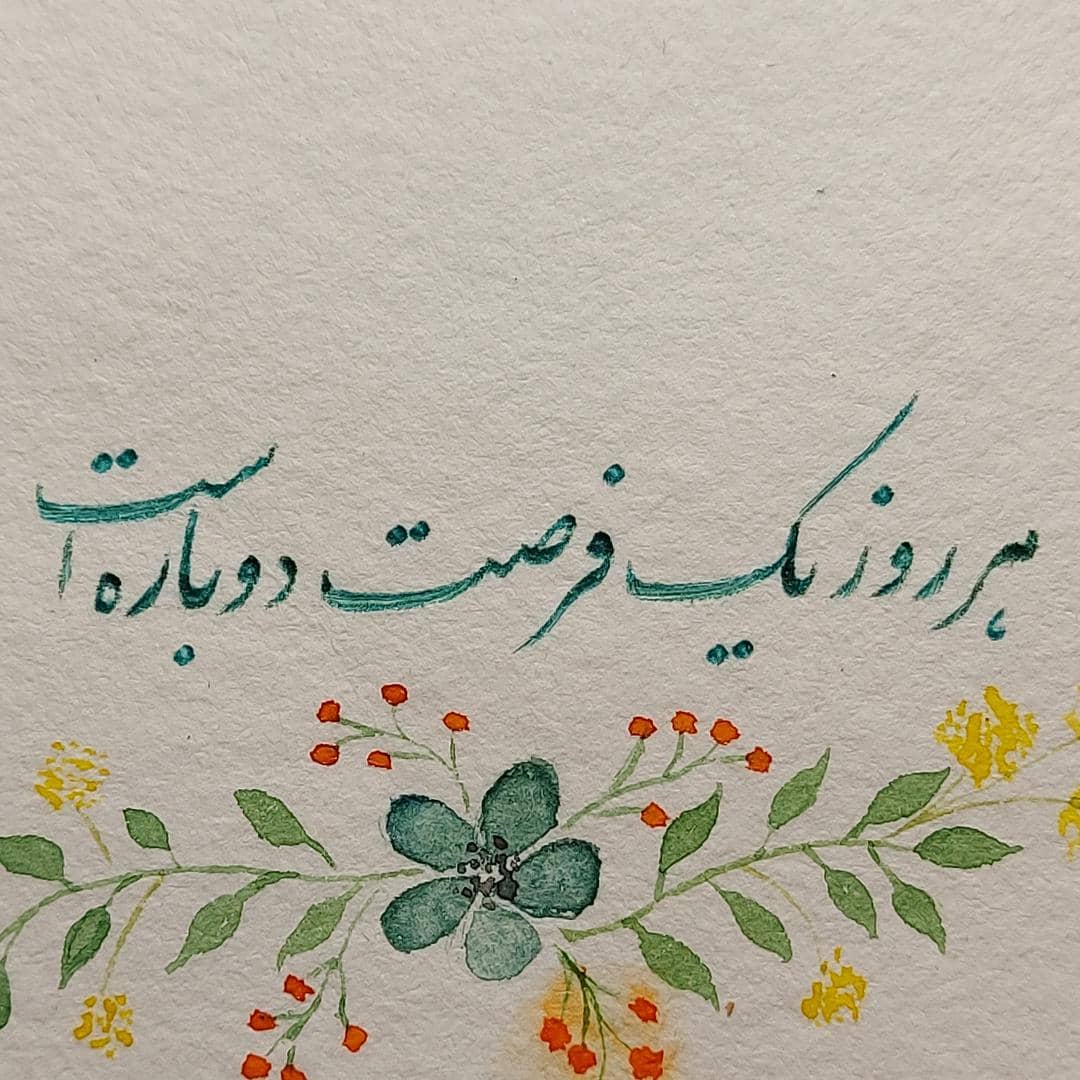 هر روز یک فرصت دوباره است